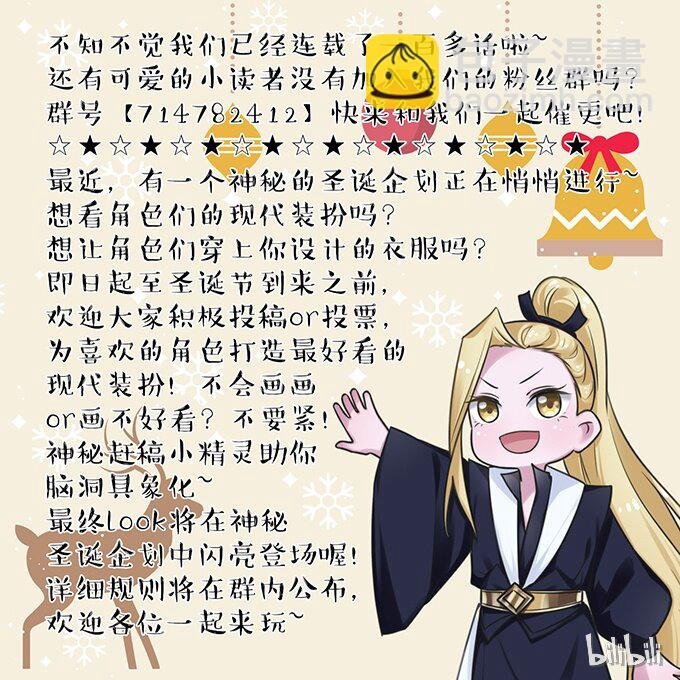 不知不觉我们已经连载了一百多话啦~
包子漫畫
baozimh.com
还有可爱的小读者没有加入我们的粉丝群吗?
群号【714782412】快来和我们一起催更吧!
☆★☆★☆★☆★☆★☆★☆★☆★☆★
最近,有一个神秘的圣诞企划正在悄悄进行~
想看角色们的现代装扮吗?
想让角色们穿上你设计的衣服吗?
即日起至圣诞节到来之前,
欢迎大家积极投稿or投票,
为喜欢的角色打造最好看的
现代装扮! 不会画画
or画不好看? 不要紧!
神秘赶稿小精灵助你
脑洞具象化~
最终look将在神秘
圣诞企划中闪亮登场喔!
详细规则将在群内公布,
欢迎各位一起来玩~
bilibili